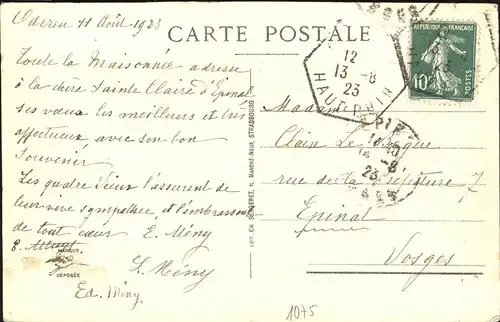 Oderen 11 Août 1923
CARTE POSTALE
Toute la Maisonnée adresse
à la chère Sainte Claire d'Epinal
ses vœux les meilleurs et très
affectueux avec son bon
Souvenir
Les quatre vieux l'assurent de
leur vive sympathie et l'embrassent
de tout cœur E. Mény
E.
L. Mény
Ed. Miny
DÉPOSÉE
EDIT. CH. BERGERET, MARCHÉ-NEUF, STRASBOURG
REPUBLIQUE FRANÇAISE
10c
POSTES
12
13 -8
23
HAUT-RHIN
-8
23
Madame
Claire Le
rue de la Préfecture 7
Epinal
Vosges
1075